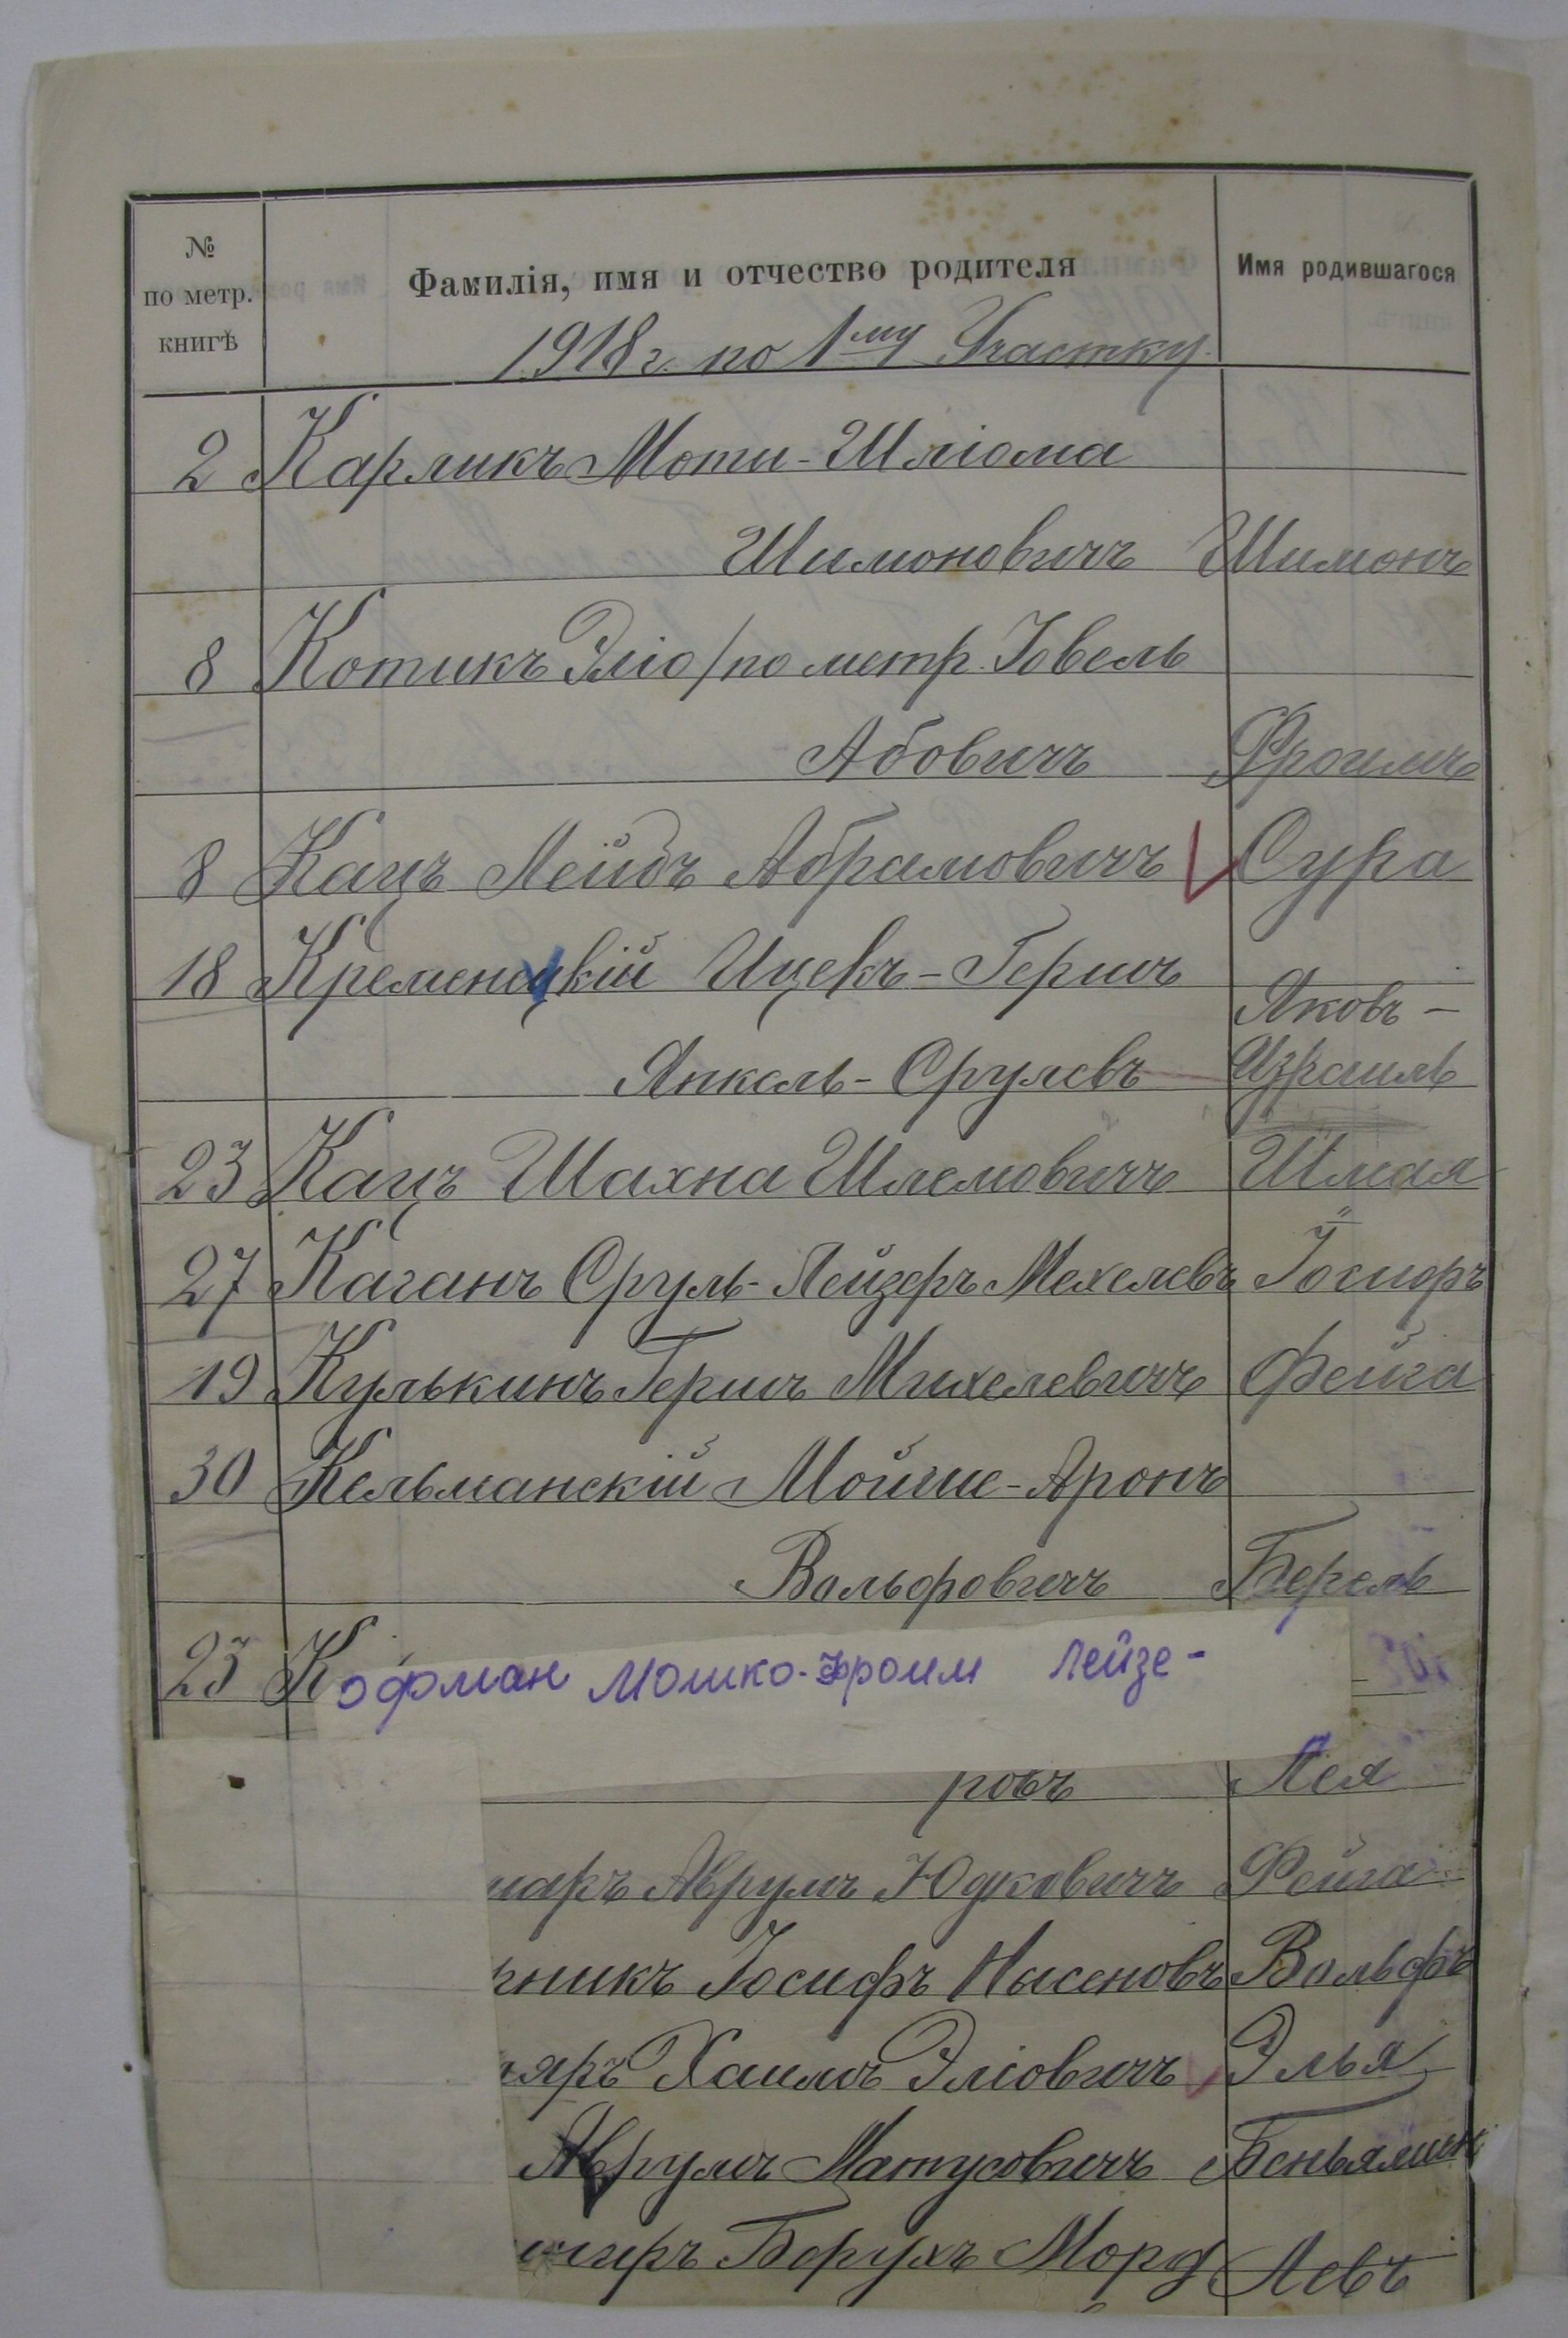 №
по метр.
книгѣ
Фамилія, имя и отчество родителя
Имя родившагося
1918 г. по 1му Участку.
2 Карликъ Моти-Шліома
Шимоновичъ Шимонъ
8 Котикъ Эліо/по метр. Іовель
Абовичъ Фроимъ
8 Кацъ Лейбъ Абрамовичъ Сура
18 Кременецкій Ицекъ-Гершъ
Яковъ-
Янкель-Срулевъ Израиль
23 Кацъ Шахна Шлемовичъ Шмая
27 Каганъ Сруль-Лейзеръ Мехелевъ Іосифъ
19 Кулькинъ Гершъ Михелевичъ Фейга
30 Кельманскій Мойше-Аронъ
Вольфовичъ Берель
23 Кофман Мошко-Фроим Лейзе-
ровъ Лея
маръ Аврумъ Юдковичъ Фейга
никъ Іосифъ Нысеновъ Вольфъ
ляръ Хаимъ Эліовичъ Элья
Аврумъ Матусовичъ Беньямин
Борухъ Морд Левъ